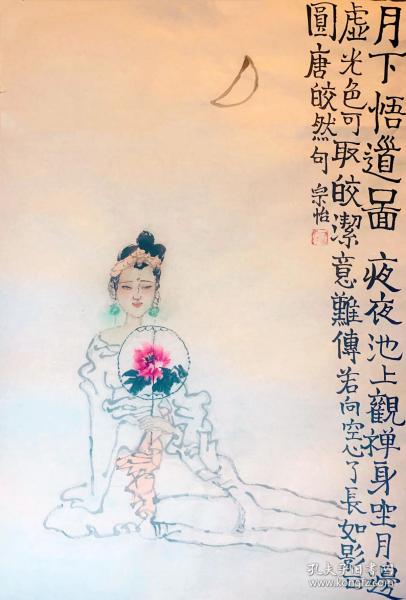 月下悟道啚 夜夜池上觀禅身坐月邊
虛光色可取皎潔意難傳若向空心了長如影
圓唐皎然句 宗怡
孔夫子旧书网